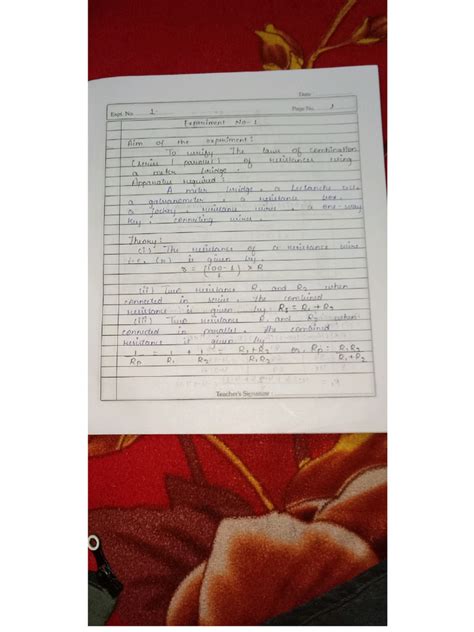 Date
Expt. No. 1. Page No. 1
Experiment No-1
Aim of the experiment:
To verify The laws of combination
(series / parallel) of resistances using
a meter bridge.
Apparatus required:
A meter bridge, a leclanche cell,
a galvanometer, a resistance box,
a jockey, resistance wires, a one-way
key, connecting wires.
Theory:
(i) The resistance of a resistance wire
i.e. (r) is given by,
r = (100-l / l) × R
(ii) Two resistance R1 and R2 when
connected in series, the combined
resistance is given by Rs = R1 + R2
(iii) Two resistance R1 and R2 when
connected in parallel, the combined
resistance is given by
1/Rp = 1/R1 + 1/R2 = R1+R2 / R1R2 or, Rp = R1R2 / R1+R2
Teacher's Signature